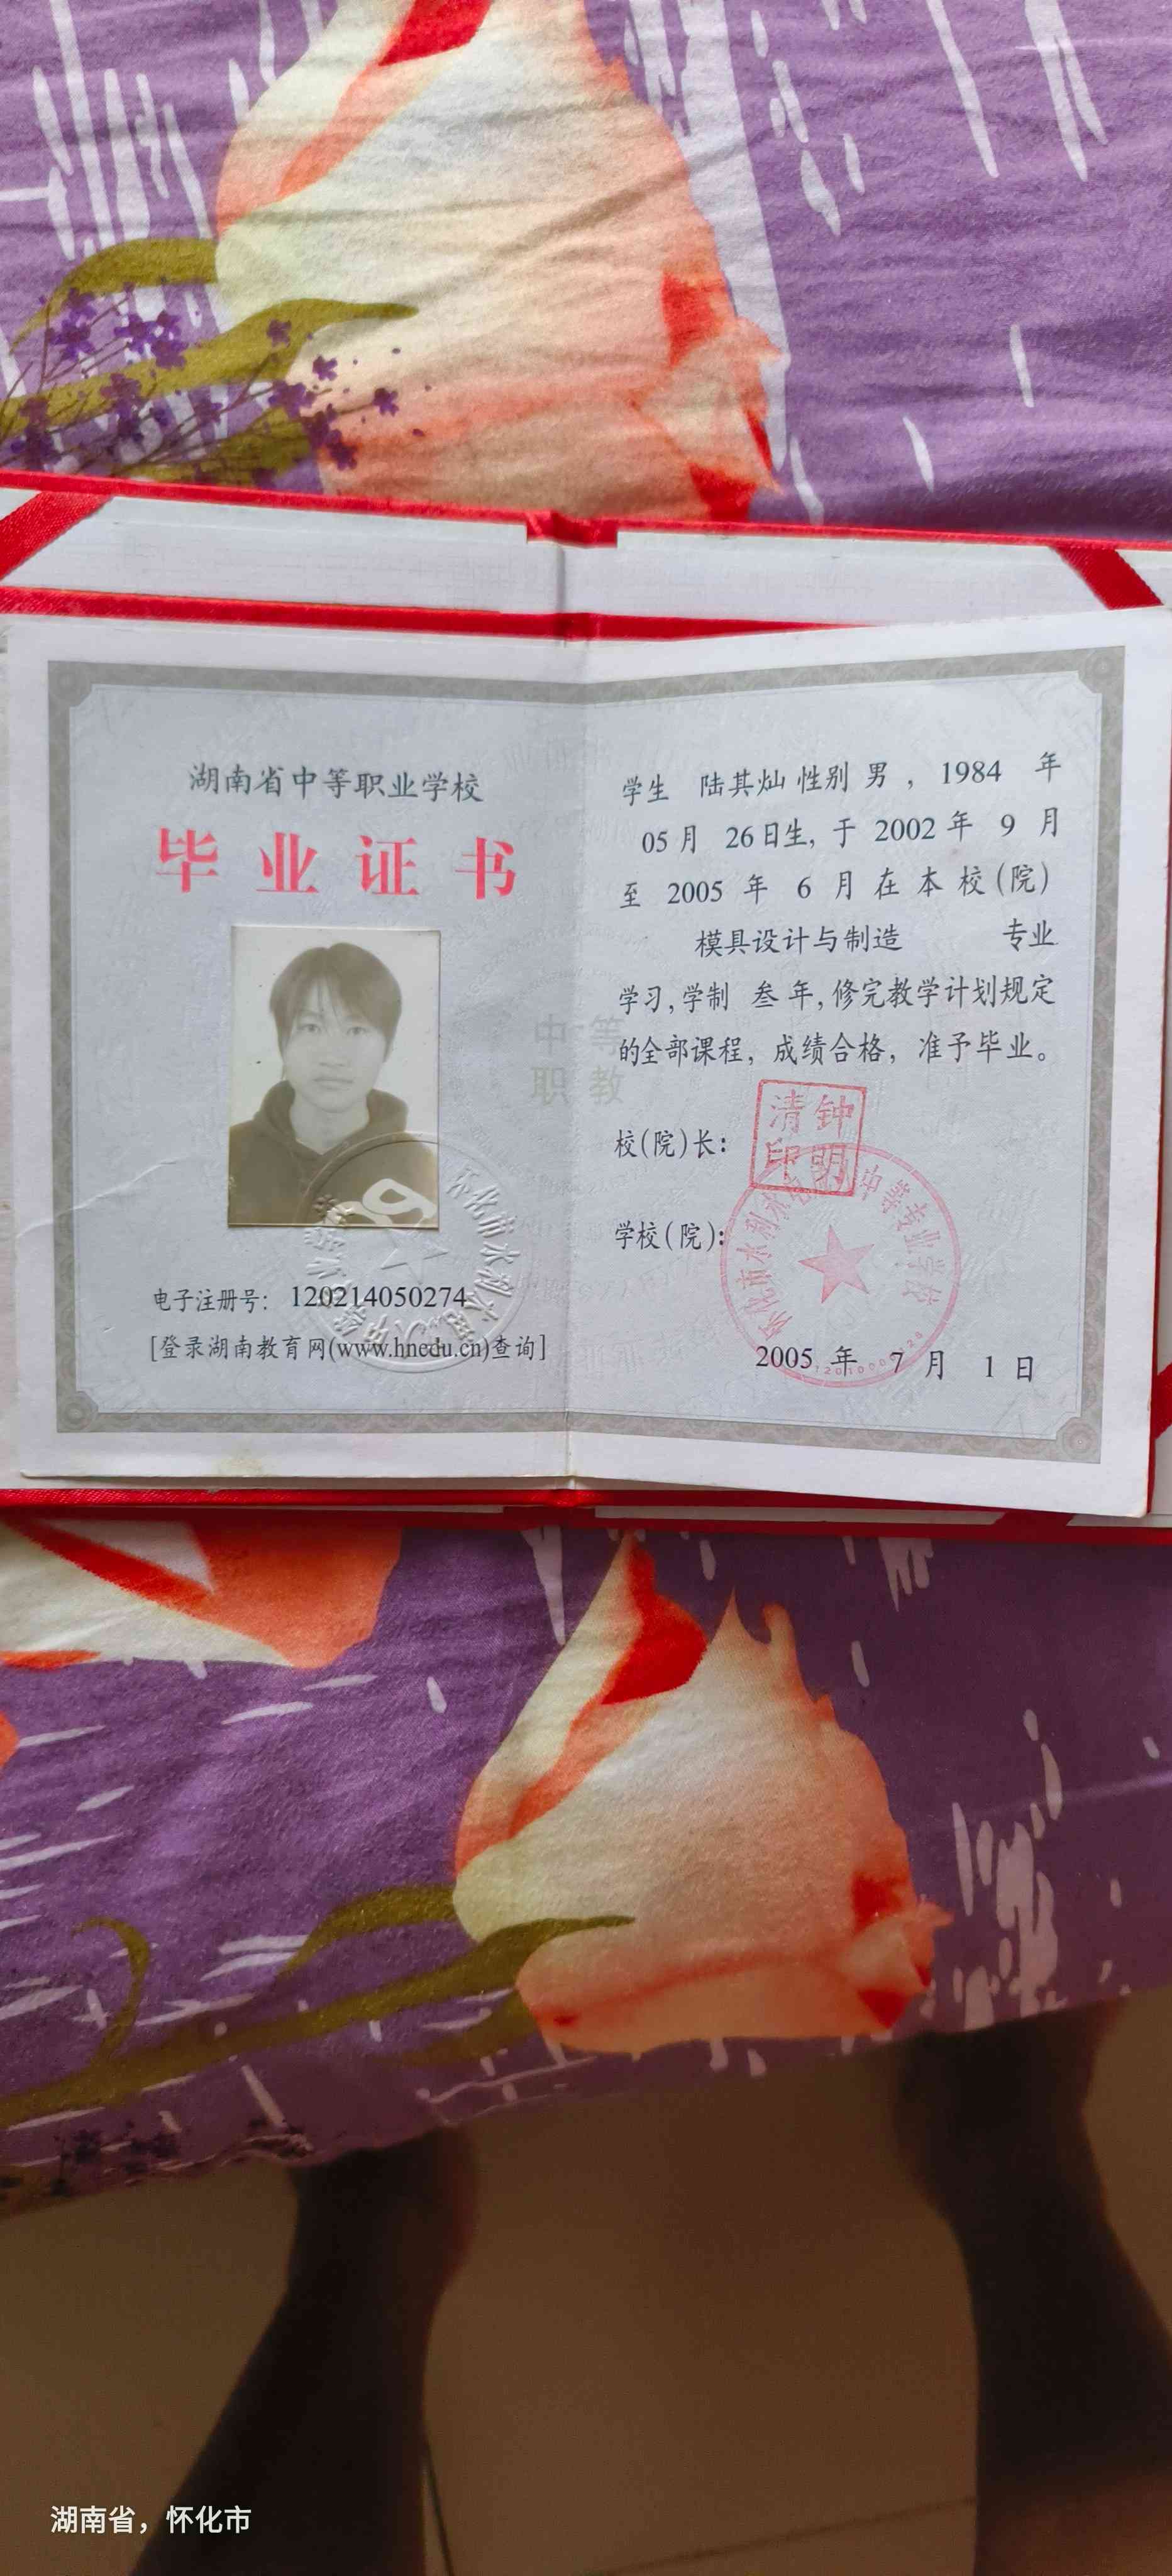 湖南省中等职业学校
毕业证书
中等
职教
电子注册号： 120214050274
[登录湖南教育网(www.hnedu.cn)查询]
学生 陆其灿 性别 男 ， 1984 年
05 月 26 日生, 于 2002 年 9 月
至 2005 年 6 月 在 本 校(院)
模具设计与制造 专业
学习, 学制 叁 年, 修完教学计划规定
的全部课程， 成绩合格， 准予毕业。
校(院)长：
钟明清印
学校(院)：
2005 年 7 月 1 日
湖南省，怀化市